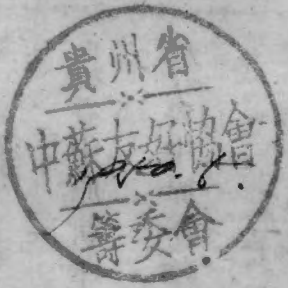 貴州省
中蘇友好協會
籌委會